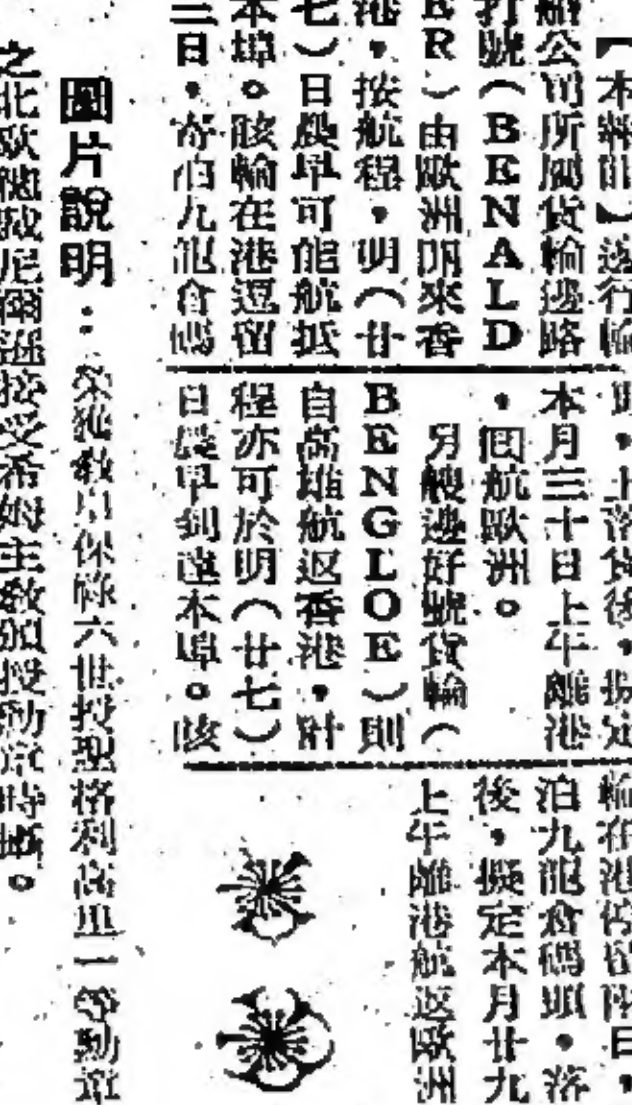 【本報訊】邊行輪
船公司所屬貨輪邊路
打號（BENALD
ER）由歐洲開來香
港，按航程，明（廿
七）日晨早可能航抵
本埠。該輪在港逗留
三日，寄泊九龍倉碼
頭，上落貨後，擬定
本月三十日上午離港
，囘航歐洲。
另艘邊好號貨輪（
BENGLOE）則
自高雄航返香港，計
程亦可於明（廿七）
日晨早到達本埠。該
輪在港停留兩日，
泊九龍倉碼頭，落
後，擬定本月廿九
上午離港航返歐洲
圖片說明：榮獲教皇保祿六世授聖格利高里一等勳章
之北歐總裁尼爾遜接受希姆主教頒授勳章時攝。